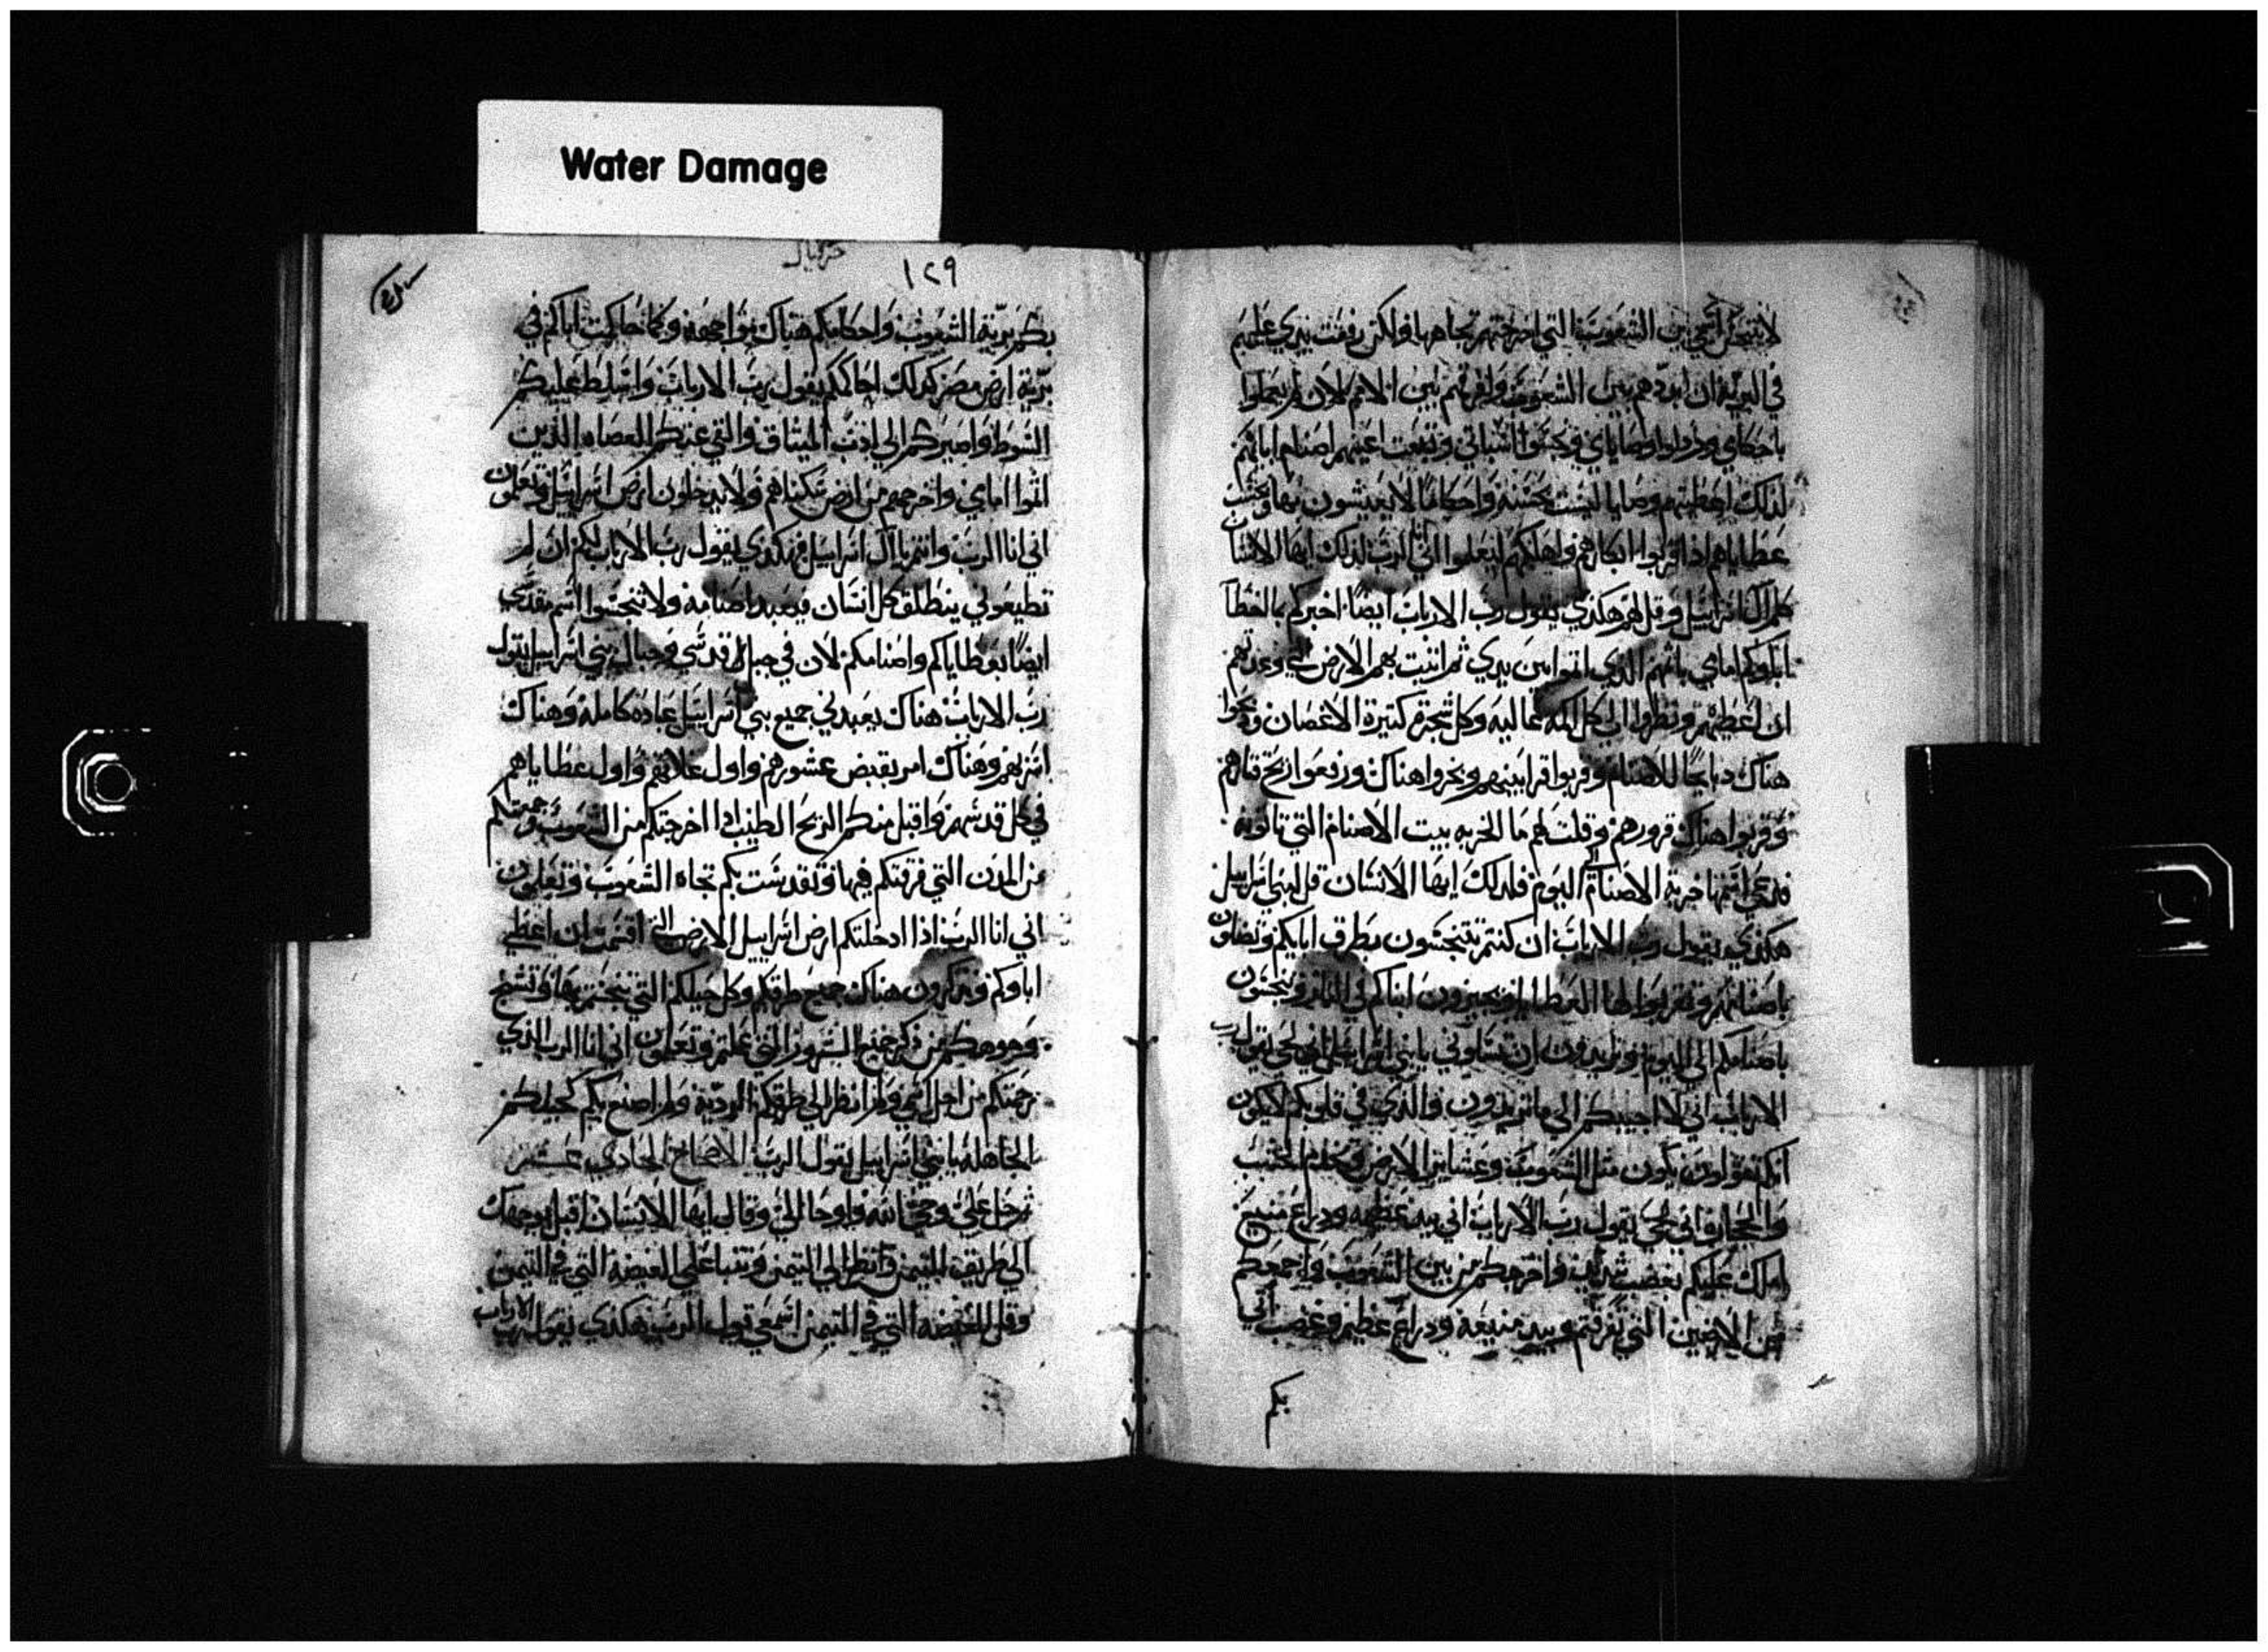 Water Damage
لا يتنجس اسمي بين الشعوب التي اخرجتهم تجاهها ولكن رفعت يدي عليهم
في البرية ان ابددهم بين الشعوب وافرقهم بين الامم لان لم يعملوا
باحكامي ورذلوا وصاياي ونجسوا اسباتي وتبعت اعينهم اصنام ابائهم
لذلك اعطيتهم وصايا ليست بحسنه واحكاما لا يعيشون بها
عطاياهم اذا قربوا ابكارهم واهلكهم ليعلموا اني الرب لذلك ايها الانسان
كلم ال اسراييل وقل لهم هكذي يقول رب الارباب ايضا اخبركم بالخطا
اباوكم امامي باثمهم الذي اثموا بين يدي ثم اتيت بهم الارض التي وعدتهم
ان اعطيهم ونظروا الي كل اكمه عاليه وكل شجرة كثيرة الاغصان وذبحوا
هناك دبايحا للاصنام وقربوا قرابينهم وبخروا هناك ورفعوا ريح
وقربوا هناك قرورهم وقلت لهم ما الخربه بيت الاصنام التي تاتونه
فدعي اسمها خربة الاصنام الي اليوم فلذلك ايها الانسان قل لبني اسراييل
هكذي يقول رب الارباب ان كنتم تتنجسون بطرق ابايكم وتضلون
باصنامهم وتقربوا لها العطايا وتجيزون ابناكم في النار وتتنجسون
باصنامكم الي اليوم وتريدون ان تسالوني يا بني اسراييل اني حي يقول رب
الارباب اني لا اجيبكم الي ما تريدون والذي في قلوبكم لا يكون
انكم تقولون نكون مثل الشعوب وعشاير الارض ونخدم الخشب
والحجارة اني حي يقول رب الارباب اني بيد عظيمه ودراع منيع
املك عليكم بغضب شديد واخرجكم من بين الشعوب واجمعكم
من الارضين التي تفرقتم بيد منيعه ودراع عظيم وغضب اتي
بكم
حزقيال
١٢٩
بكم برية الشعوب واحاكمكم هناك مواجهه وكما حاكمت اباكم في
برية ارض مصر كذلك احاكمكم يقول رب الارباب واسلط عليكم
السوط واصيركم الي ادب الميثاق والقي عنكم العصاه الذين
اثموا امامي واخرجهم من ارض سكناهم ولا يدخلون ارض اسراييل وتعلمون
اني انا الرب وانتم يا ال اسراييل فهكذي يقول رب الارباب لكم ان لم
تطيعوني ينطلق كل انسان فيعبد اصنامه ولا تنجسوا اسم قدسي
ايضا بعطاياكم واصنامكم لان في جبل قدسي وجبال بني اسراييل يقول
رب الارباب هناك يعبدني جميع بني اسراييل عبادة كامله وهناك
اسر بهم وهناك امر بقبض عشورهم واول غلاتهم واول عطاياهم
في كل قدسهم واقبل منكم الريح الطيب اذا اخرجتكم من الشعوب وجمعتكم
من المدن التي فرقتكم فيها وتقدست بكم تجاه الشعوب وتعلمون
اني انا الرب اذا ادخلتكم ارض اسراييل الارض التي اقسمت ان اعطي
اباوكم وتذكرون هناك جميع طرقكم وكل حيلكم التي تنجستم بها وتسمج
وجوهكم من ذكر جميع الشرور التي عملتم وتعلمون اني انا الرب الذي
رحمتكم من اجل اسمي ولم انظر الي طرقكم الرديه ولم اصنع بكم كحيلكم
الجاهله يا بني اسراييل يقول الرب الاصحاح الحادي عشر
ثم حل علي وحي الله واوحا الي وقال ايها الانسان اقبل بوجهك
الي طريق التيمن وانظر الي التيمن وتنبا علي الغيضه التي في التيمن
وقل للغيضه التي في التيمن اسمعي قول الرب هكذي يقول رب الارباب